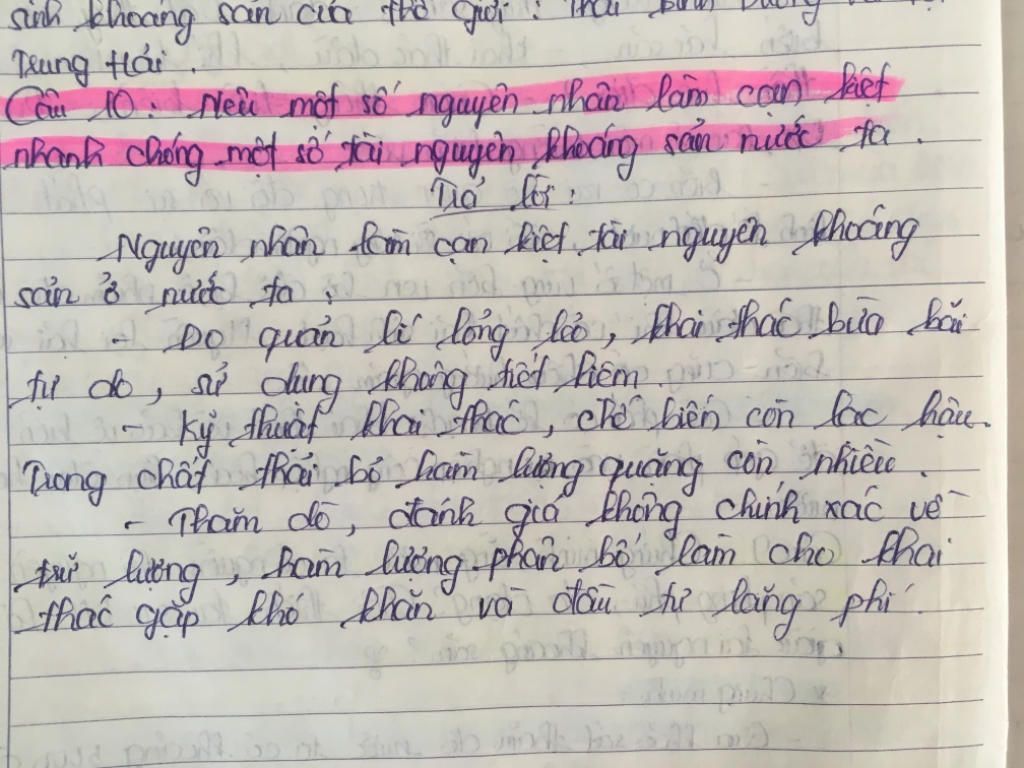 sinh khoáng sản của thế giới : Thái Bình Dương và Địa
Trung Hải .
Câu 10 : Nêu một số nguyên nhân làm cạn kiệt
nhanh chóng một số tài nguyên khoáng sản nước ta .
Trả lời :
Nguyên nhân làm cạn kiệt tài nguyên khoáng
sản ở nước ta .
- Do quản lí lỏng lẻo , khai thác bừa bãi
tự do , sử dụng không tiết kiệm .
- Kỹ thuật khai thác , chế biến còn lạc hậu .
Trong chất thải bỏ hàm lượng quặng còn nhiều .
- Thăm dò , đánh giá không chính xác về
trữ lượng , hàm lượng phân bố làm cho khai
thác gặp khó khăn và đầu tư lãng phí